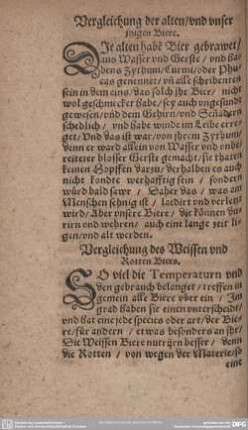 Vergleichung der alten/vnd vnser
jtzigen Biere.
Die alten habē Bier gebrawet/
aus Wasser vnd Gerste / vnd da-
uon Zythum/Curmi/oder Phu-
cas genennet/ vñ alle schreibenten
sein in dem eins/das solch jhr Bier/ nicht
wol geschmeckt habe/sey auch vngesundt
gewesen/vnd dem Gehirn/vnd Seňadern
schedlich / vnd habe winde im Leibe erre-
get. Vnd das ist war/von jhrem Zythum/
denn er ward allein von Wasser vnd vnbe-
reiteter blosser Gerste gemacht/sie thaten
keinen Hopffen darin/ derhalben es auch
nicht kondte werhafftig sein / sondern
würd bald sawr / Daher das / was am
Menschen sehnig ist / laedirt vnd verletzt
wird/Aber vnsere Biere/ die können de-
rirn vnd wehren/ auch eine lange zeit li-
gen/vnd alt werden.
Vergleichung des Weissen vnd
Rotten Biers.
SO viel die Temperaturn vnd
den gebrauch belanget/treffen in
gemein alle Biere vber ein / Im
grad haben sie einen vnterscheidt/
vnd hat eine jede species oder art/der Bie-
re/für andern / etwas besonders an jhr/
Die Weissen Biere nutriren besser / denn
die Rotten / von wegen der Materie/so
eine